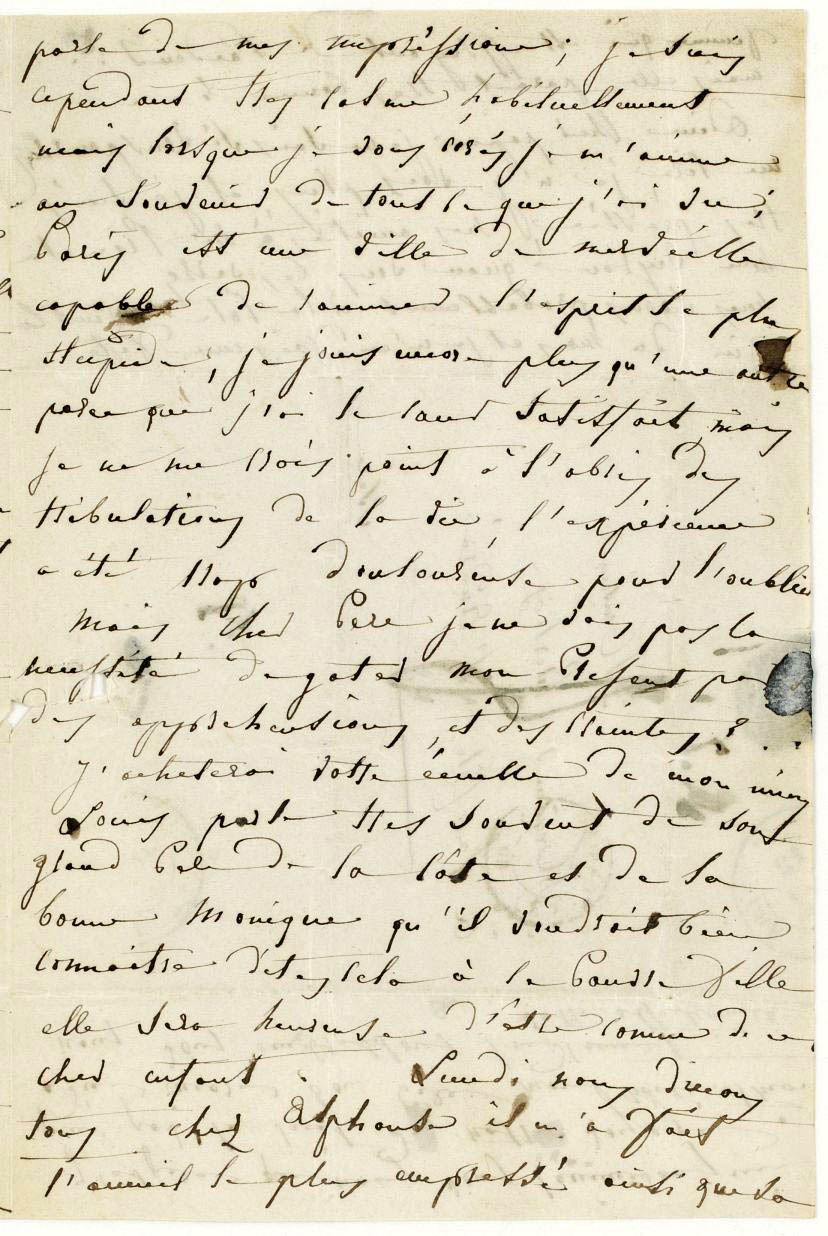 parle de mes impressions ; je suis
cependant tres calme habituellement
mais lorsque je vous écris je m'anime
au souvenir de tout ce que j'ai vu ;
Paris est une ville de merveille
capable de ranimer l'esprit le plus
stupide , je jouis encore plus qu'une autre
parce que j'ai le cœur satisfait, mais
je ne me crois point à l'abris des
tribulations de la vie, l'expérience
a été trop douloureuse pour l'oublier
mais cher Pere je ne vois pas la
necessité de gater mon Present par
des apprehensions, et des craintes ?
J'acheterai votre écuelle de mon mieux
Louis parle tres souvent de son
grand Pere de la Côte et de la
bonne Monique qu'il voudroit bien
connaitre dites cela à la Pauvre Fille
elle sera heureuse d'etre connue de ce
cher enfant . Lundi nous dinons
tous chez Alphonse il m'a fait
l'accueil le plus empressé ainsi que sa